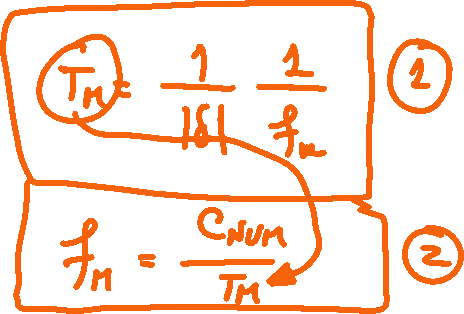 T_M = \frac{1}{|δ|} \frac{1}{f_n} ①
f_M = \frac{C_{NUM}}{T_M} ②